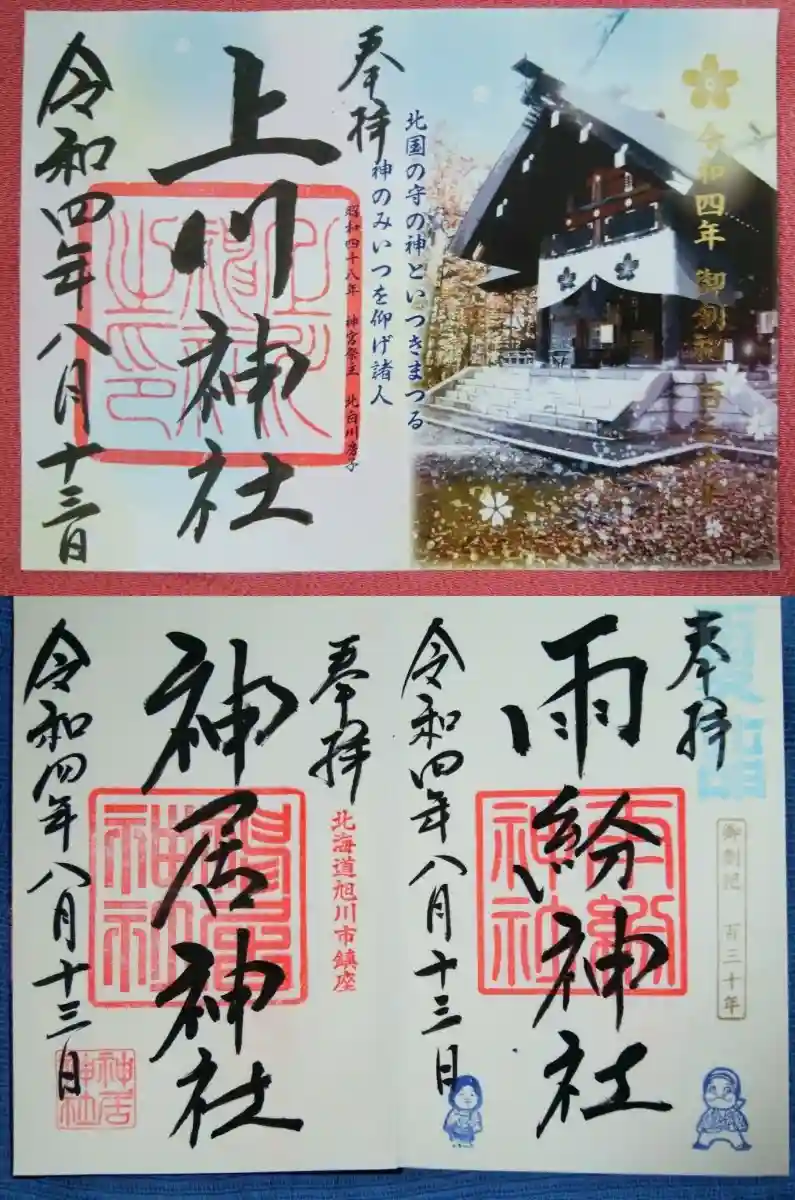 令和四年 御創祀百三十年
奉拝
北国の守の神といつきまつる
神のみいつを仰げ諸人
昭和四十八年 神宮祭主 北白川房子
上川神社
令和四年八月十三日
奉拝
御創祀 百三十年
雨紛神社
令和四年八月十三日
奉拝
北海道旭川市鎮座
神居神社
令和四年八月十三日
神居
神社